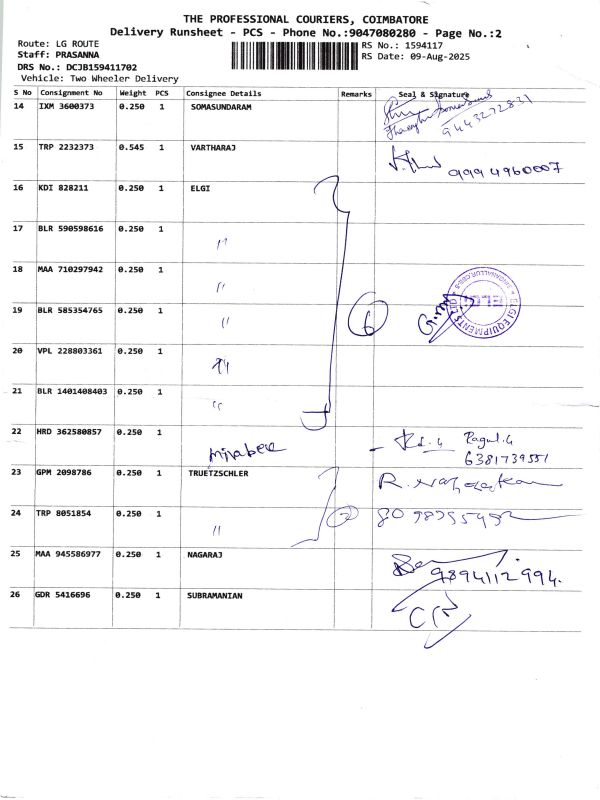 THE PROFESSIONAL COURIERS, COIMBATORE
Delivery Runsheet - PCS - Phone No.:9047080280 - Page No.:2
Route: LG ROUTE
Staff: PRASANNA
DRS No.: DCJB159411702
Vehicle: Two Wheeler Delivery
RS No.: 1594117
RS Date: 09-Aug-2025
S No Consignment No Weight PCS Consignee Details Remarks Seal & Signature
14 IXM 3600373 0.250 1 SOMASUNDARAM
9443272831
15 TRP 2232373 0.545 1 VARTHARAJ
9994960007
16 KDI 828211 0.250 1 ELGI
17 BLR 590598616 0.250 1 〃
18 MAA 710297942 0.250 1 〃
19 BLR 585354765 0.250 1 〃
6
ELGI EQUIPMENTS LTD
20 VPL 228803361 0.250 1 〃
21 BLR 1401408403 0.250 1 〃
22 HRD 362580857 0.250 1
Ragul.G
6381739551
23 GPM 2098786 0.250 1 TRUETZSCHLER
24 TRP 8051854 0.250 1 〃
2
25 MAA 945586977 0.250 1 NAGARAJ
9894112994.
26 GDR 5416696 0.250 1 SUBRAMANIAN